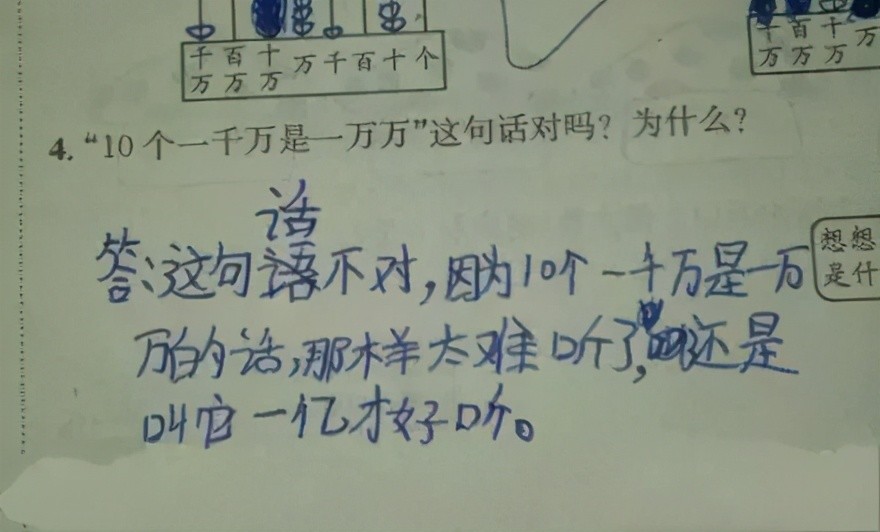 千 百 十 万 千 百 十 个
万 万 万
千 百 十 万
万 万 万
4. “10 个一千万是一万万”这句话对吗？为什么？
话
答:这句语不对,因为10个一千万是一万
万的话,那样太难听了,还是
叫它一亿才好听。
想想
是什